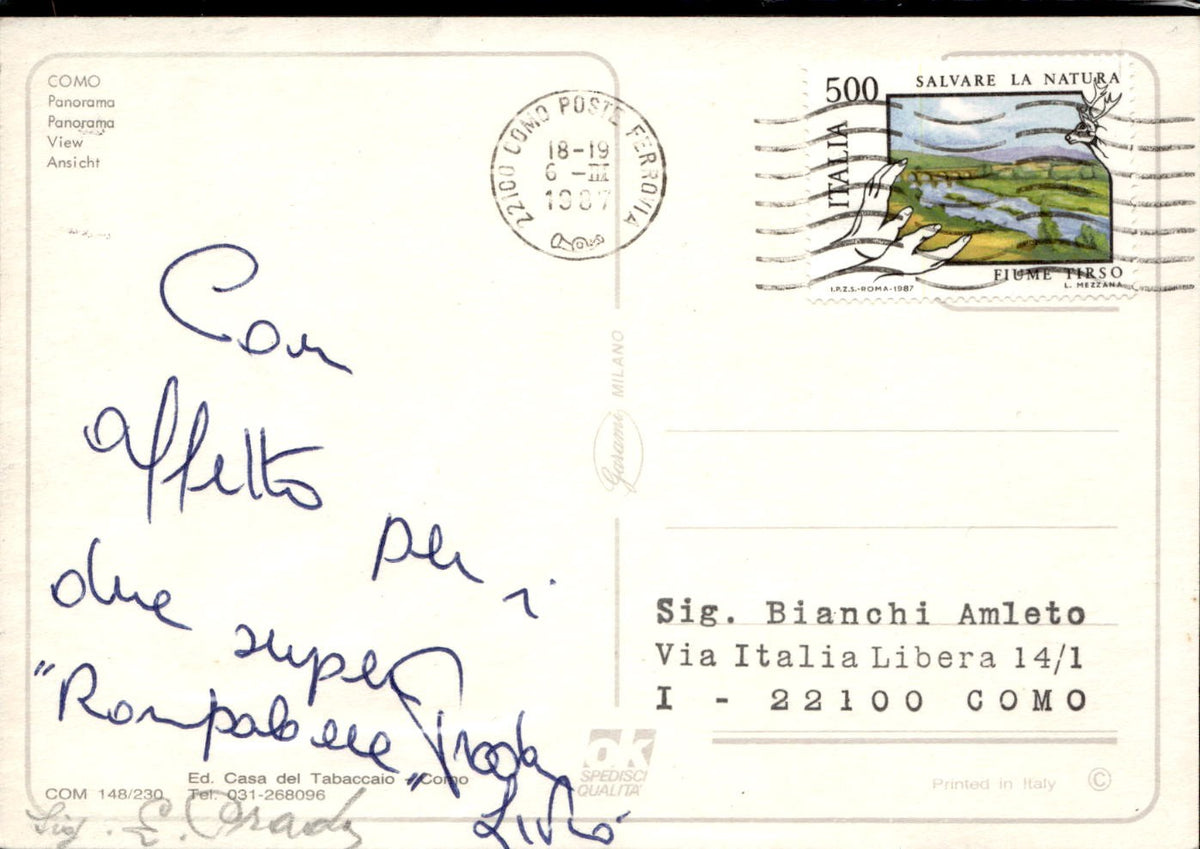 COMO
Panorama
Panorama
View
Ansicht
22100 COMO POSTE FERROVIA
18-19
6 -III
1987
500
SALVARE LA NATURA
ITALIA
FIUME TIRSO
I.P.Z.S.-ROMA-1987
L. MEZZANA
Con
affetto
per i
due super
"Rompaballe"
Garami MILANO
Sig. Bianchi Amleto
Via Italia Libera 14/1
I - 22100 COMO
ok
SPEDISCI
QUALITA'
Ed. Casa del Tabaccaio - Como
COM 148/230 Tel. 031-268096
Printed in Italy ©
Sig. E.